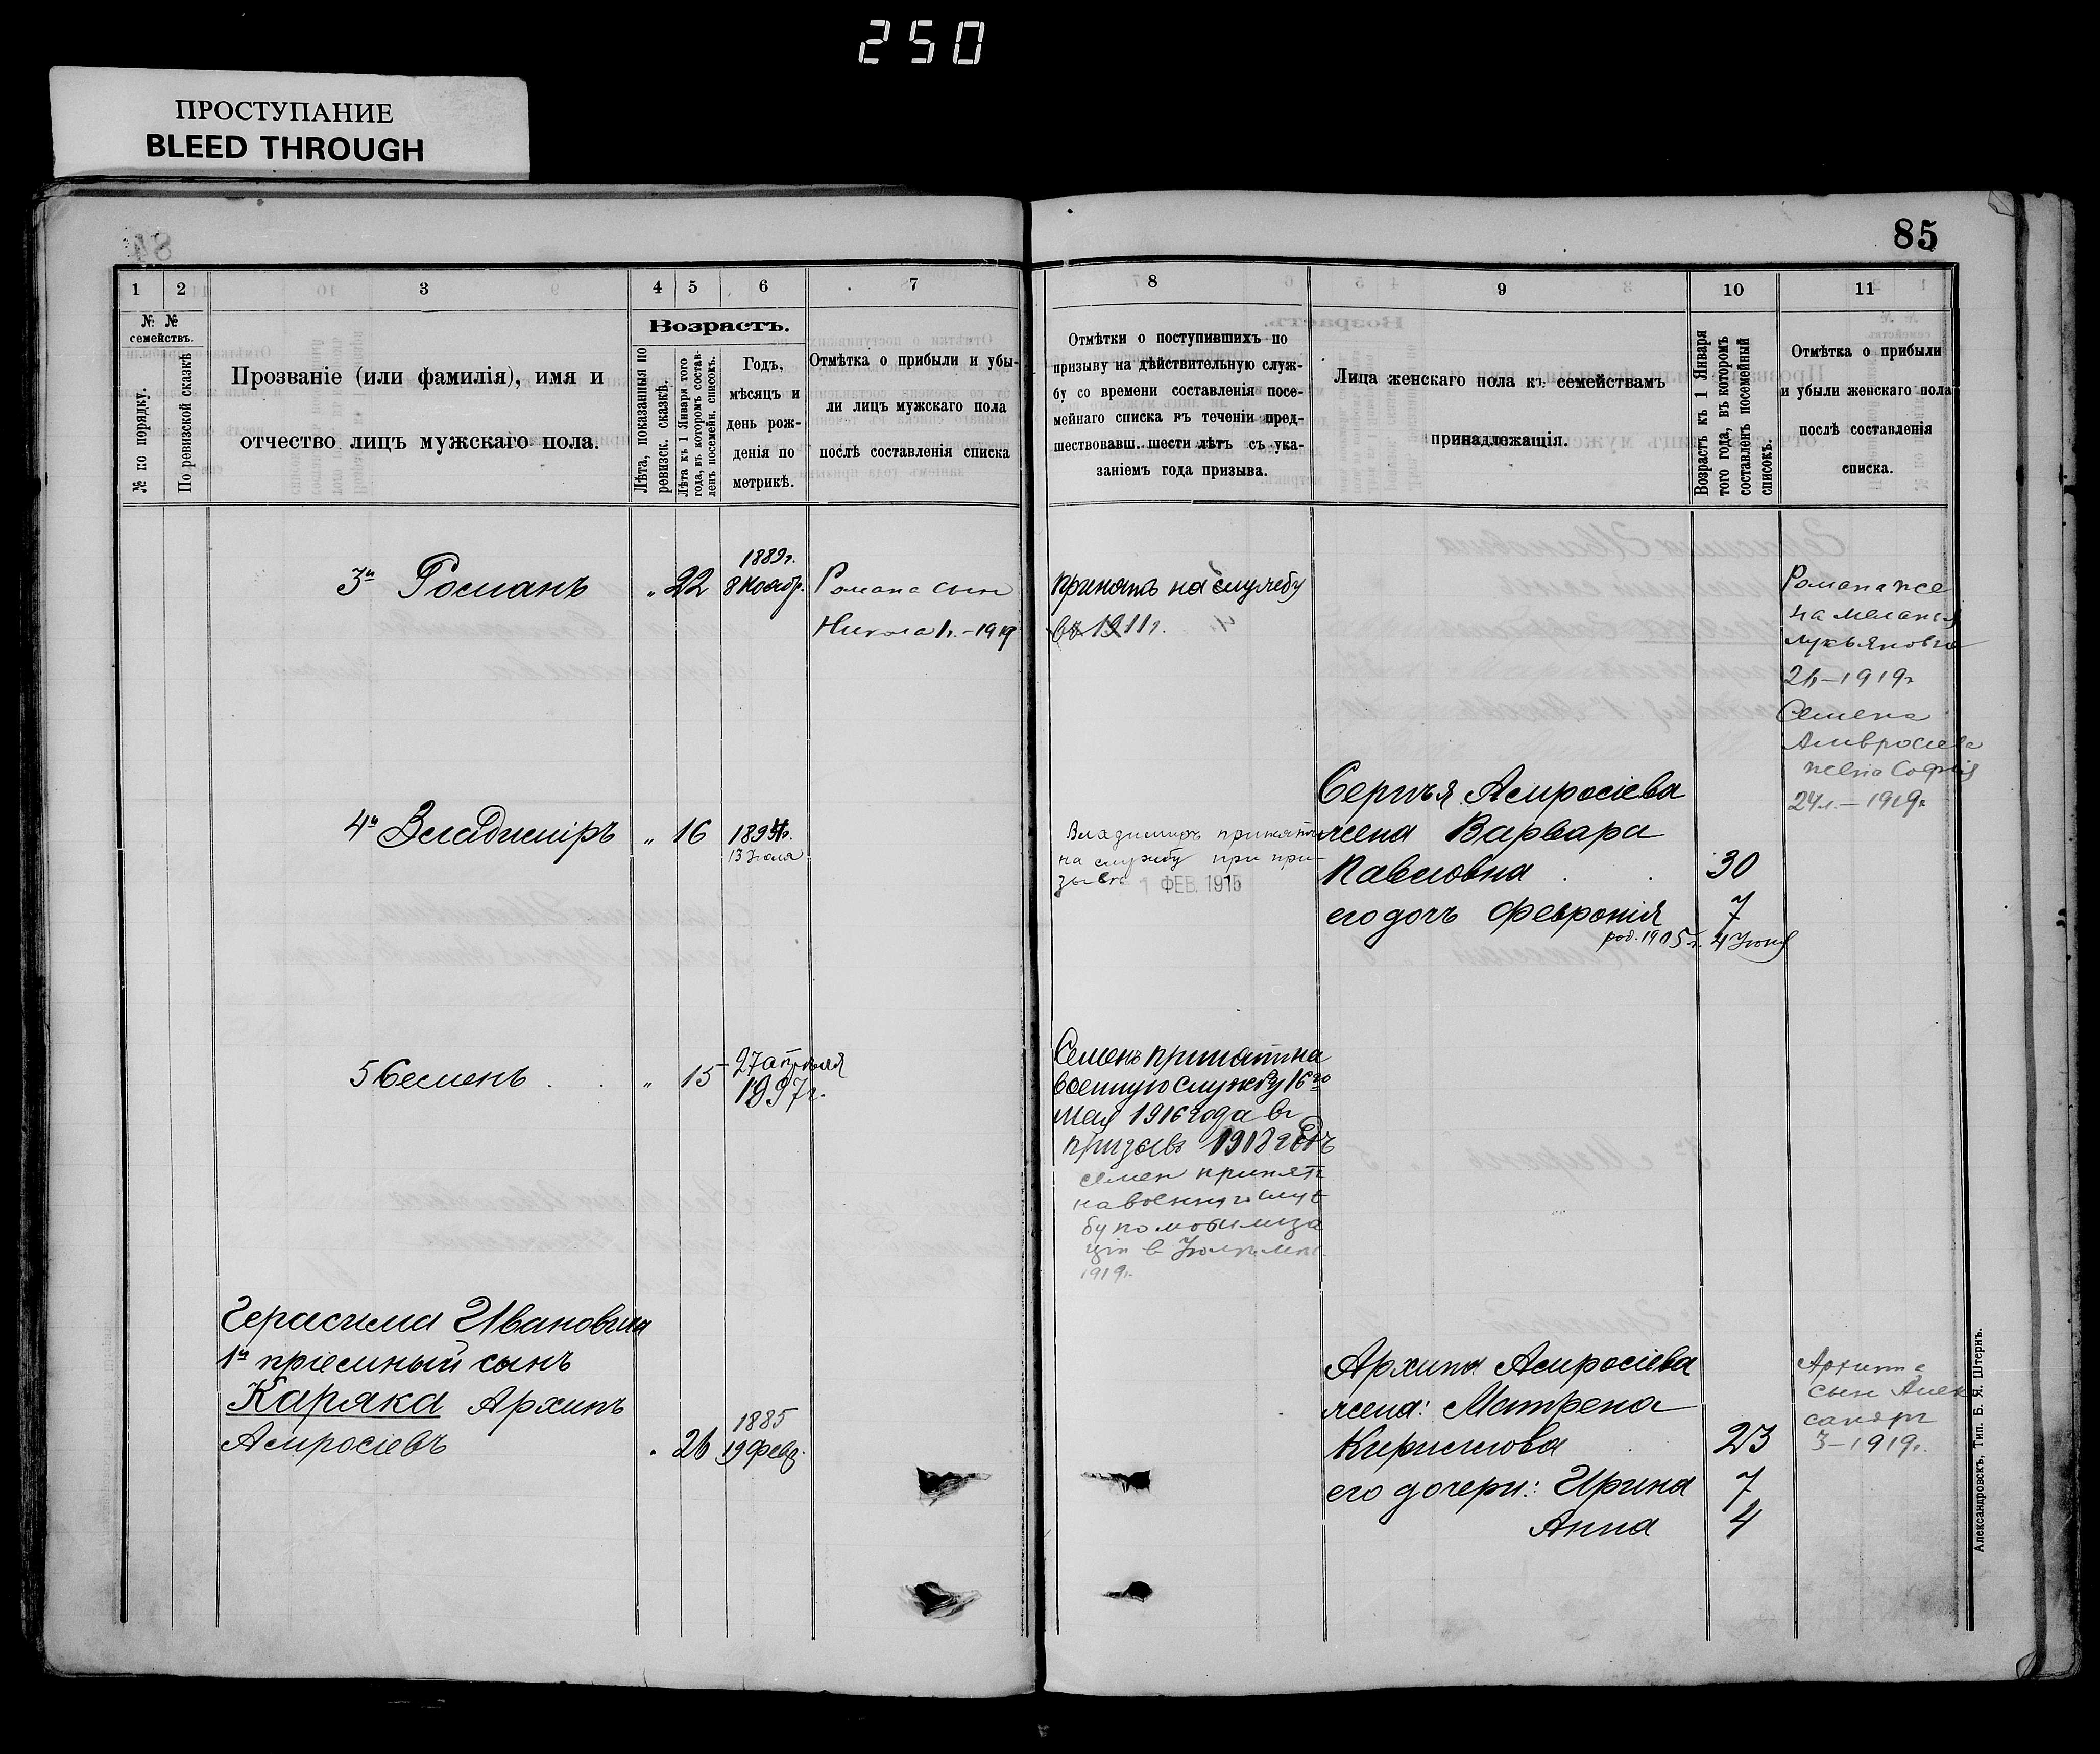 250
ПРОСТУПАНИЕ
BLEED THROUGH
85
1 2 3 4 5 6 7
8 9 10 11
№ №
семействъ.
№ по порядку.
По ревизской сказкѣ
Прозваніе (или фамилія), имя и
отчество лицъ мужскаго пола.
Возрастъ.
Лѣта, показанныя по
ревизск. сказкѣ.
Лѣта къ 1 Января того
года, въ которомъ состав-
ленъ посемейн. списокъ.
Годъ,
мѣсяцъ и
день рож-
денія по
метрикѣ.
Отмѣтка о прибыли и убы-
ли лицъ мужскаго пола
послѣ составленія списка
Отмѣтки о поступившихъ по
призыву на дѣйствительную служ-
бу со времени составленія посе-
мейнаго списка въ теченіи пред-
шествовавш. шести лѣтъ съ ука-
заніемъ года призыва.
Лица женскаго пола къ семействамъ
принадлежащія.
Возрастъ къ 1 Января
того года, въ которомъ
составленъ посемейный
списокъ.
Отмѣтка о прибыли
и убыли женскаго пола
послѣ составленія
списка.
3й Романъ „ 22
1889г.
8 Ноябр.
Романа сын
Никола 1г. - 1919
принятъ на службу
въ 1911г.
Романа же
на Мелания
Лукьяновна
21г - 1919г
Семена
Амвросиева
жена София
24л. - 1919г
4й Владиміръ „ 16
13 Іюля
Владимиръ принятъ
на службу при при-
зывѣ
1 ФЕВ. 1915
Сергѣя Амросіева
жена Варвара
Павловна 30
его дочь Февронія 7
род. 1905г. 4 Іюня
5 Семенъ „ 15
27 апрѣля
1897г.
Семенъ принятъ на
военную службу 16го
мая 1916 года въ
призывъ 1918 годъ
семен принят
на военную служ
бу по мобилиза
ціи в
1919г.
Герасима Ивановича
1й пріемный сынъ
Каряка Архипъ
Амросіевъ „ 26
1885
19 февр.
Архипа Амросіева
жена: Матрена
Кирилова 23
его дочери: Ирина 7
Анна 4
Архипа
сын Алек
сандр
3 - 1919г.
Александровскъ, Тип. Б. Я. Штернъ.